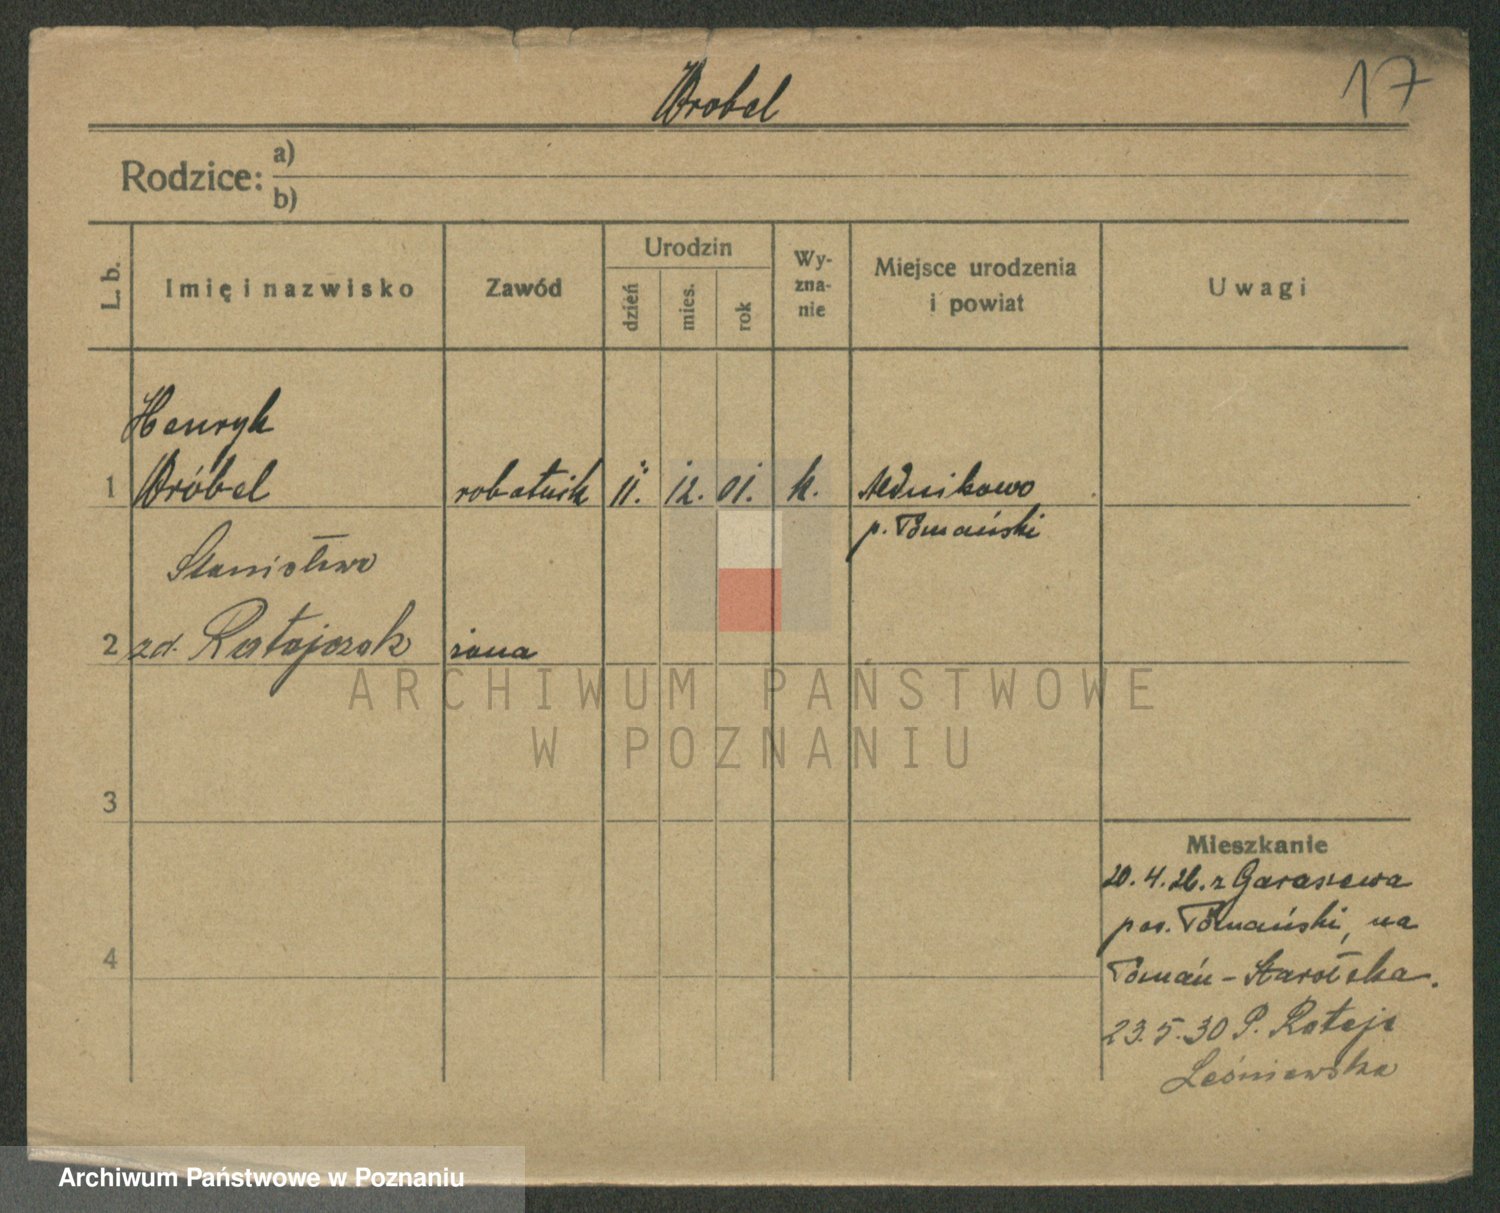 Wrobel
17
Rodzice: a)
b)
L. b.
Imię i nazwisko
Zawód
Urodzin
dzień
mies.
rok
Wy-
zna-
nie
Miejsce urodzenia
i powiat
Uwagi
Henryk
1 Wróbel robotnik 11. 12. 01. k.
p. Poznański
Stanisława
2 zd. Ratajczak żona
ARCHIWUM PAŃSTWOWE
W POZNANIU
3
Mieszkanie
20. 4. 26. z Garaszewa
pow. Poznański, na
4
Poznań - Starołęka.
23. 5. 30 P. Rataje
Leśniewska
Archiwum Państwowe w Poznaniu